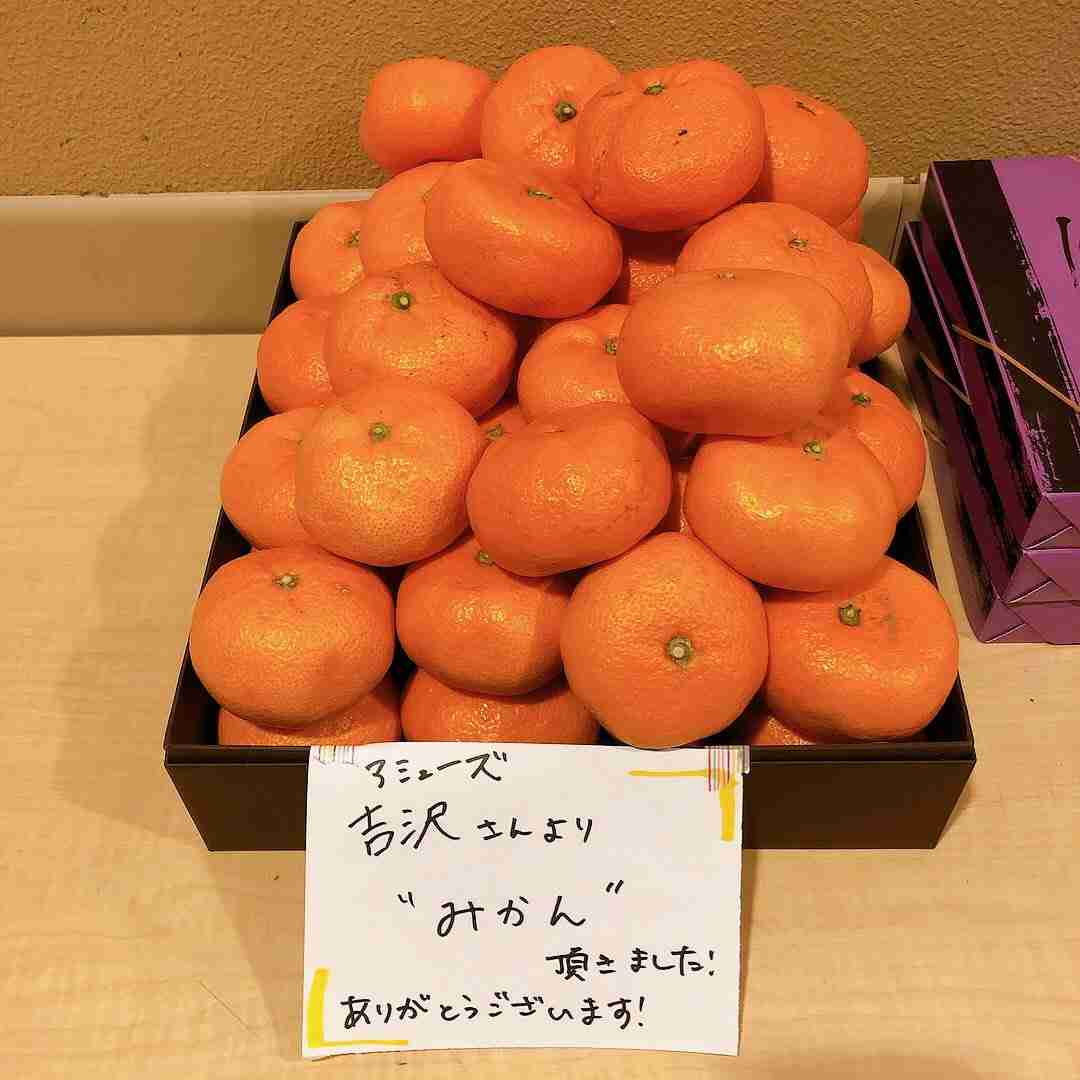 アミューズ
吉沢さんより
"みかん"
頂きました!
ありがとうございます!